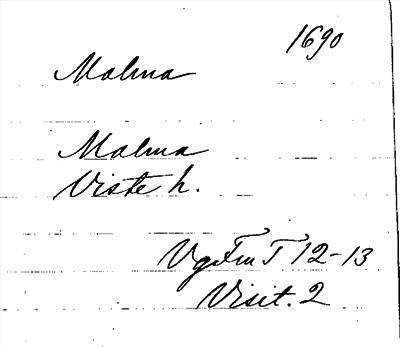 1690
Malma
Malma
Viste h.
VgFmT 12-13
Visit. 2